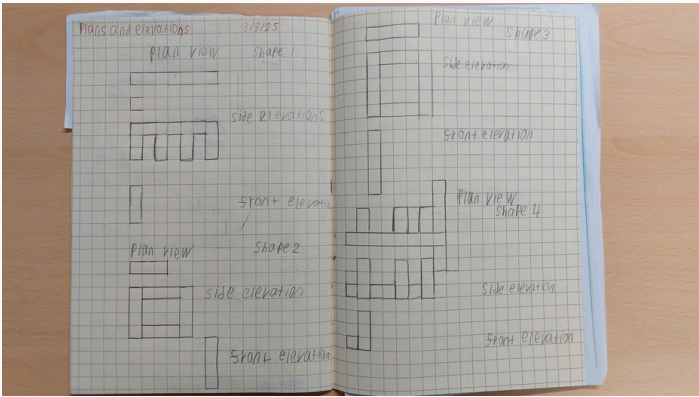 Plans and elevations 3/3/25
Plan view Shape 1
side elevations
front elevation
Plan view Shape 2
side elevation
front elevation
Plan view
Shape 3
Side elevation
front elevation
Plan view
Shape 4
Side elevation
front elevation